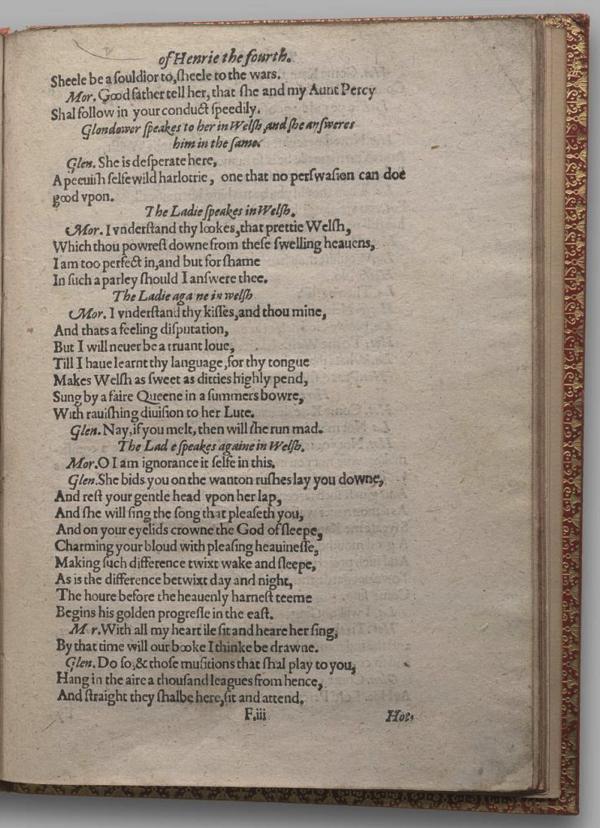 of Henrie the fourth.
Sheele be a souldior to, sheele to the wars.
Mor. Good father tell her, that she and my Aunt Percy
Shal follow in your conduct speedily.
Glondower speakes to her in Welsh, and she answeres
him in the same.
Glen. She is desperate here,
A peeuish selfewild harlotrie, one that no perswasion can doe
good vpon.
The Ladie speakes in Welsh.
Mor. I vnderstand thy lookes, that prettie Welsh,
Which thou powrest downe from these swelling heauens,
I am too perfect in, and but for shame
In such a parley should I answere thee.
The Ladie aga ne in welsh
Mor. I vnderstand thy kisses, and thou mine,
And thats a feeling disputation,
But I will neuer be a truant loue,
Till I haue learnt thy language, for thy tongue
Makes Welsh as sweet as ditties highly pend,
Sung by a faire Queene in a summers bowre,
With rauishing diuision to her Lute.
Glen. Nay, if you melt, then will she run mad.
The Lad e speakes againe in Welsh.
Mor. O I am ignorance it selfe in this.
Glen. She bids you on the wanton rushes lay you downe,
And rest your gentle head vpon her lap,
And she will sing the song that pleaseth you,
And on your eyelids crowne the God of sleepe,
Charming your bloud with pleasing heauinesse,
Making such difference twixt wake and sleepe,
As is the difference betwixt day and night,
The houre before the heauenly harnest teeme
Begins his golden progresse in the east.
M r. With all my heart ile sit and heare her sing,
By that time will our booke I thinke be drawne.
Glen. Do so, & those musitions that shal play to you,
Hang in the aire a thousand leagues from hence,
And straight they shalbe here, sit and attend.
F.iii
Hot.